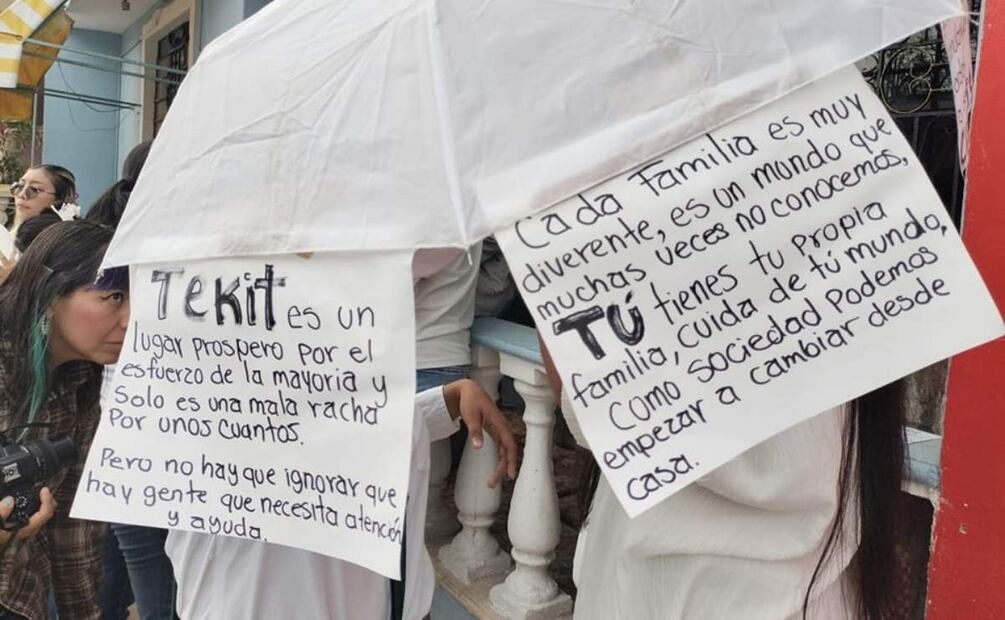 TEKit es un
lugar prospero por el
esfuerzo de la mayoria y
Solo es una mala racha
Por unos cuantos.
Pero no hay que ignorar que
hay gente que necesita atención
y ayuda.
Cada Familia es muy
diverente, es un mundo que
muchas veces no conocemos,
TÚ tienes tu propia
familia, cuida de tú mundo,
como sociedad podemos
empezar a cambiar desde
casa.